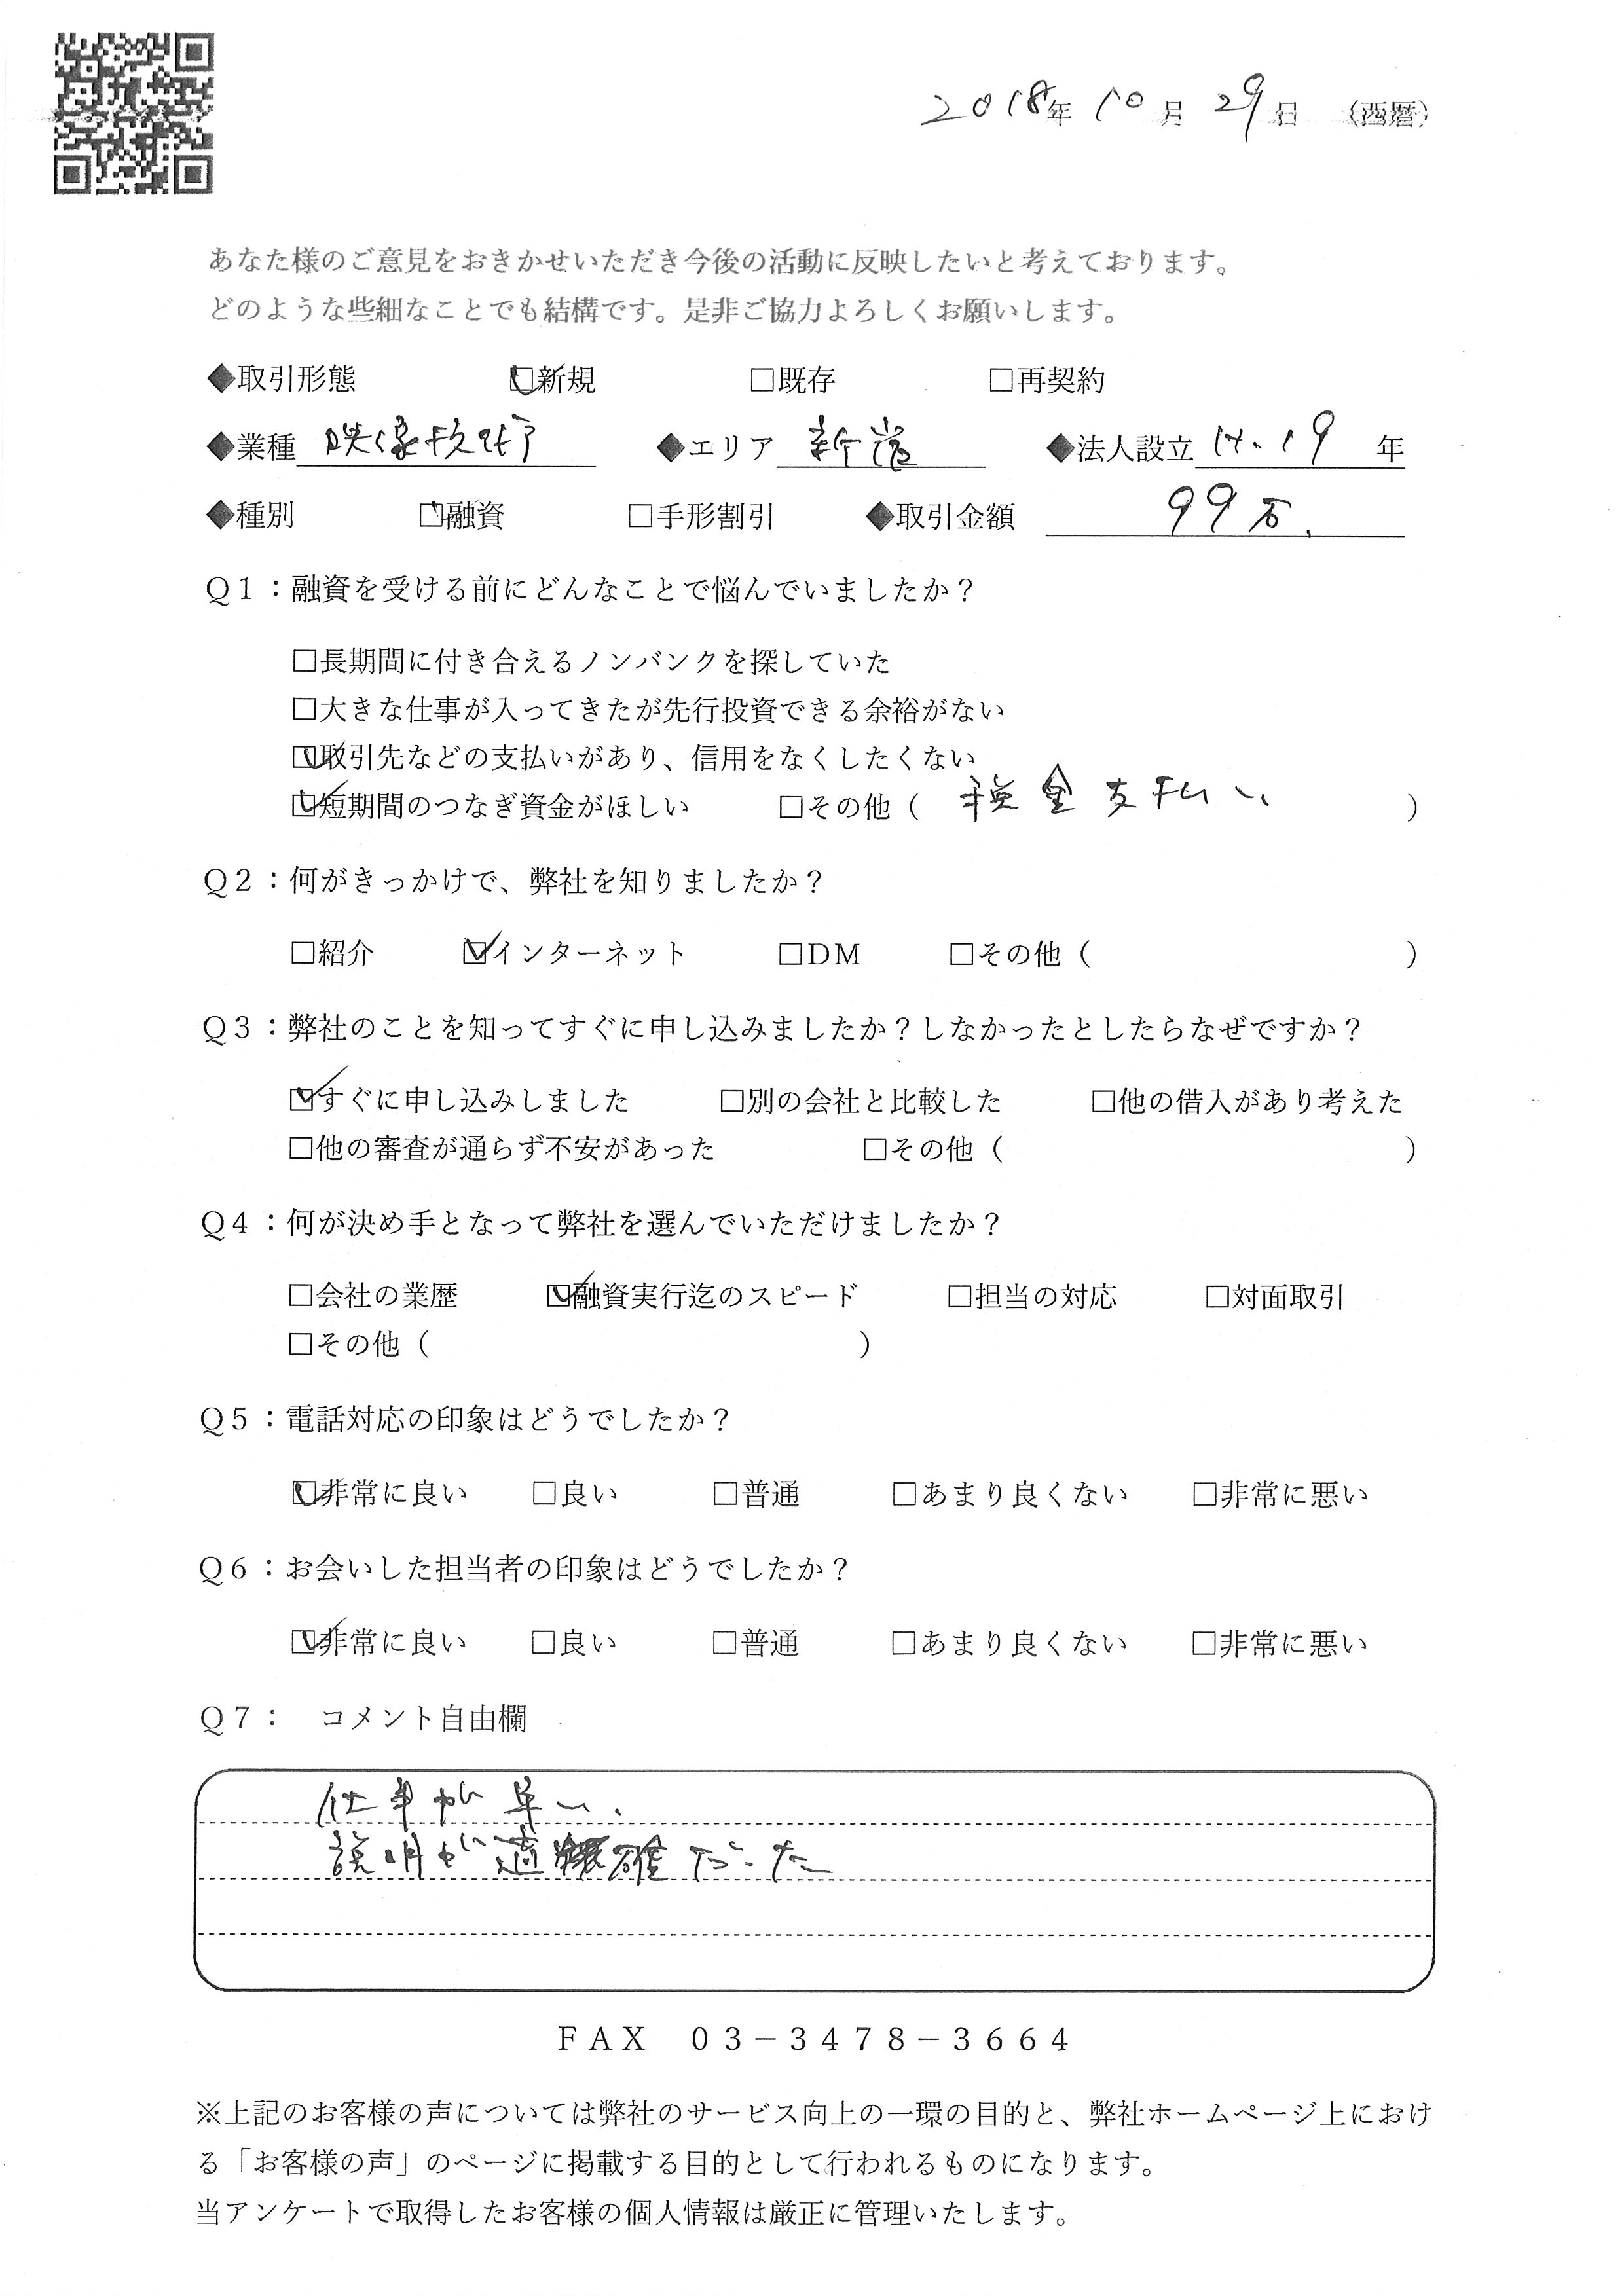 2018年 10月 29日 （西暦）
あなた様のご意見をおきかせいただき今後の活動に反映したいと考えております。
どのような些細なことでも結構です。是非ご協力よろしくお願いします。
◆取引形態 ☑新規 □既存 □再契約
◆業種 映像技術 ◆エリア 新宿 ◆法人設立 H.19 年
◆種別 ☑融資 □手形割引 ◆取引金額 99万.
Q1：融資を受ける前にどんなことで悩んでいましたか？
□長期間に付き合えるノンバンクを探していた
□大きな仕事が入ってきたが先行投資できる余裕がない
☑取引先などの支払いがあり、信用をなくしたくない
☑短期間のつなぎ資金がほしい □その他（ 税金支払い ）
Q2：何がきっかけで、弊社を知りましたか？
□紹介 ☑インターネット □DM □その他（ ）
Q3：弊社のことを知ってすぐに申し込みましたか？しなかったとしたらなぜですか？
☑すぐに申し込みしました □別の会社と比較した □他の借入があり考えた
□他の審査が通らず不安があった □その他（ ）
Q4：何が決め手となって弊社を選んでいただけましたか？
□会社の業歴 ☑融資実行迄のスピード □担当の対応 □対面取引
□その他（ ）
Q5：電話対応の印象はどうでしたか？
☑非常に良い □良い □普通 □あまり良くない □非常に悪い
Q6：お会いした担当者の印象はどうでしたか？
☑非常に良い □良い □普通 □あまり良くない □非常に悪い
Q7： コメント自由欄
仕事が早い.
説明が適確だった
FAX 03－3478－3664
※上記のお客様の声については弊社のサービス向上の一環の目的と、弊社ホームページ上におけ
る「お客様の声」のページに掲載する目的として行われるものになります。
当アンケートで取得したお客様の個人情報は厳正に管理いたします。